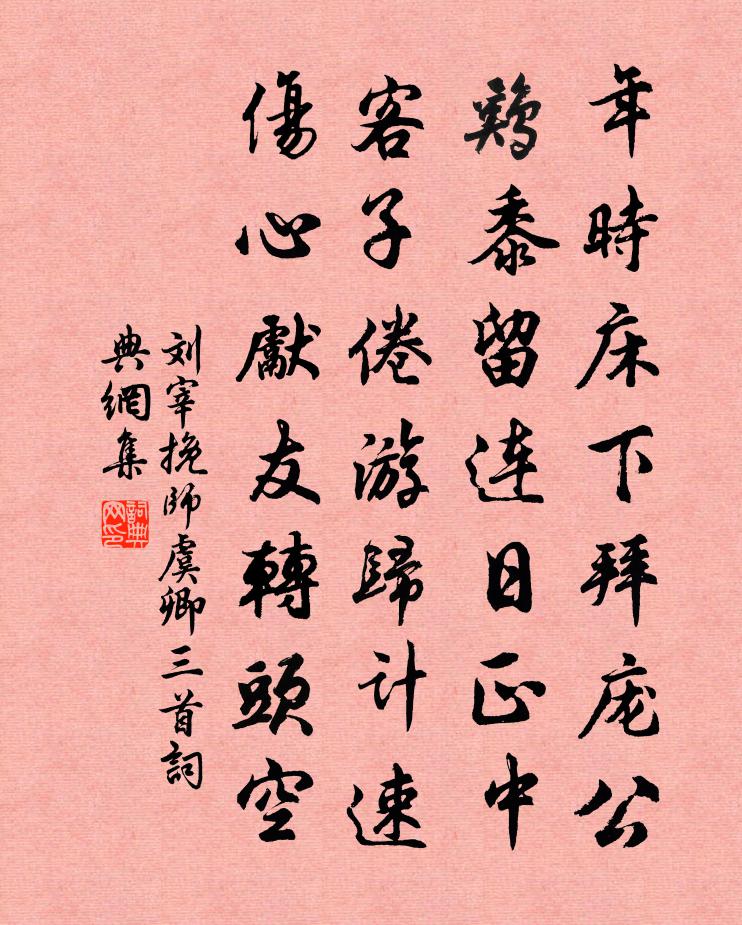 年時床下拜庞公
鷄黍留連日正中
客子倦游歸計速
傷心獻友轉頭空
刘宰挽師虞卿三首詞
典網集
詞典
网印